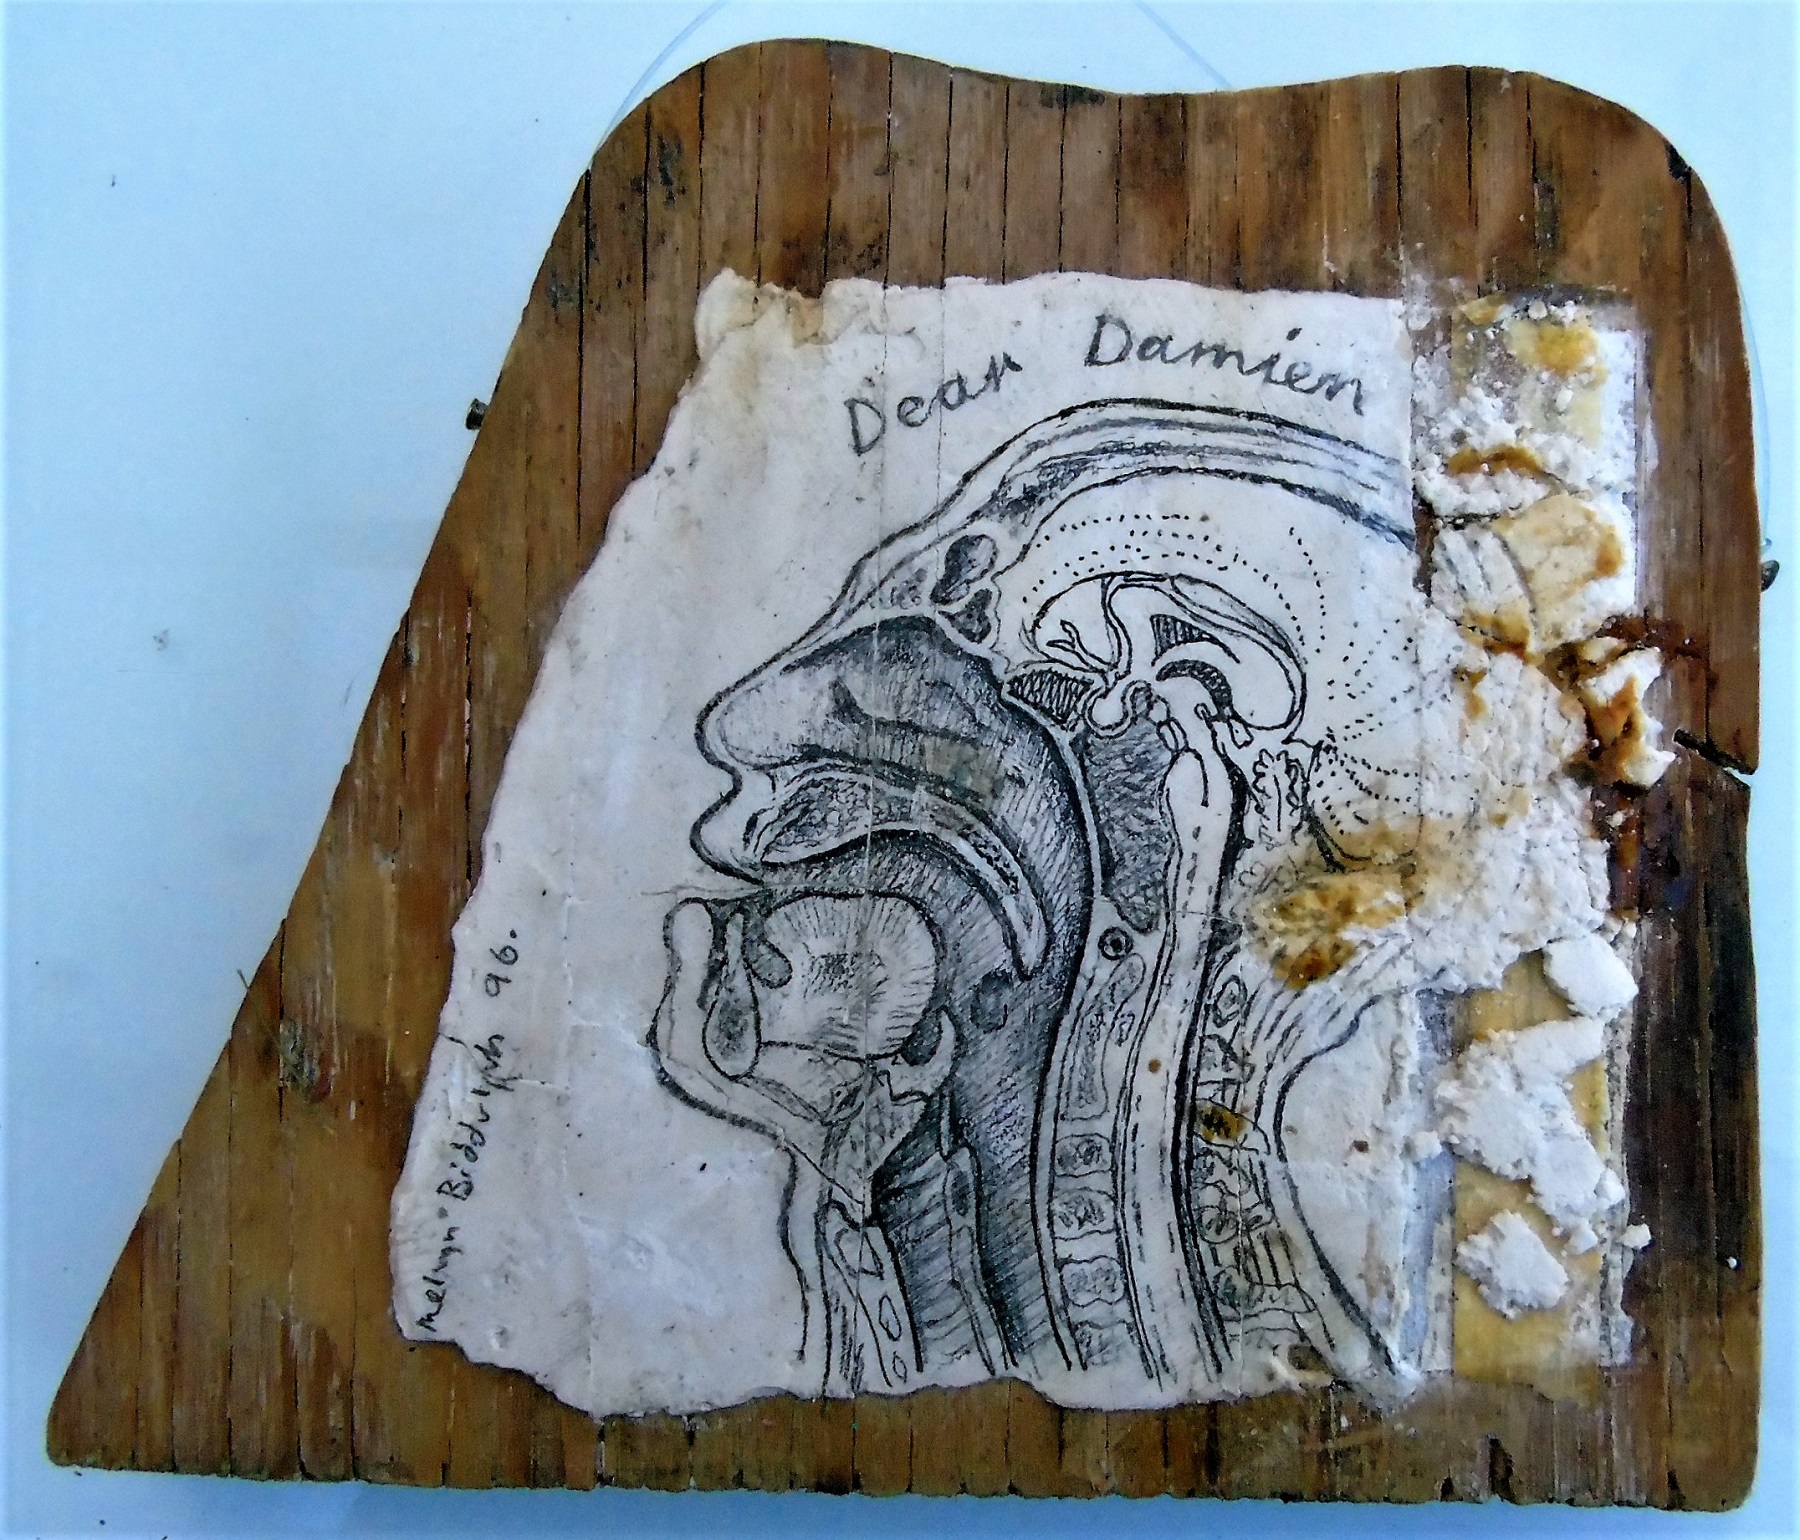 Dear Damien
Melwyn Biddulph 96.